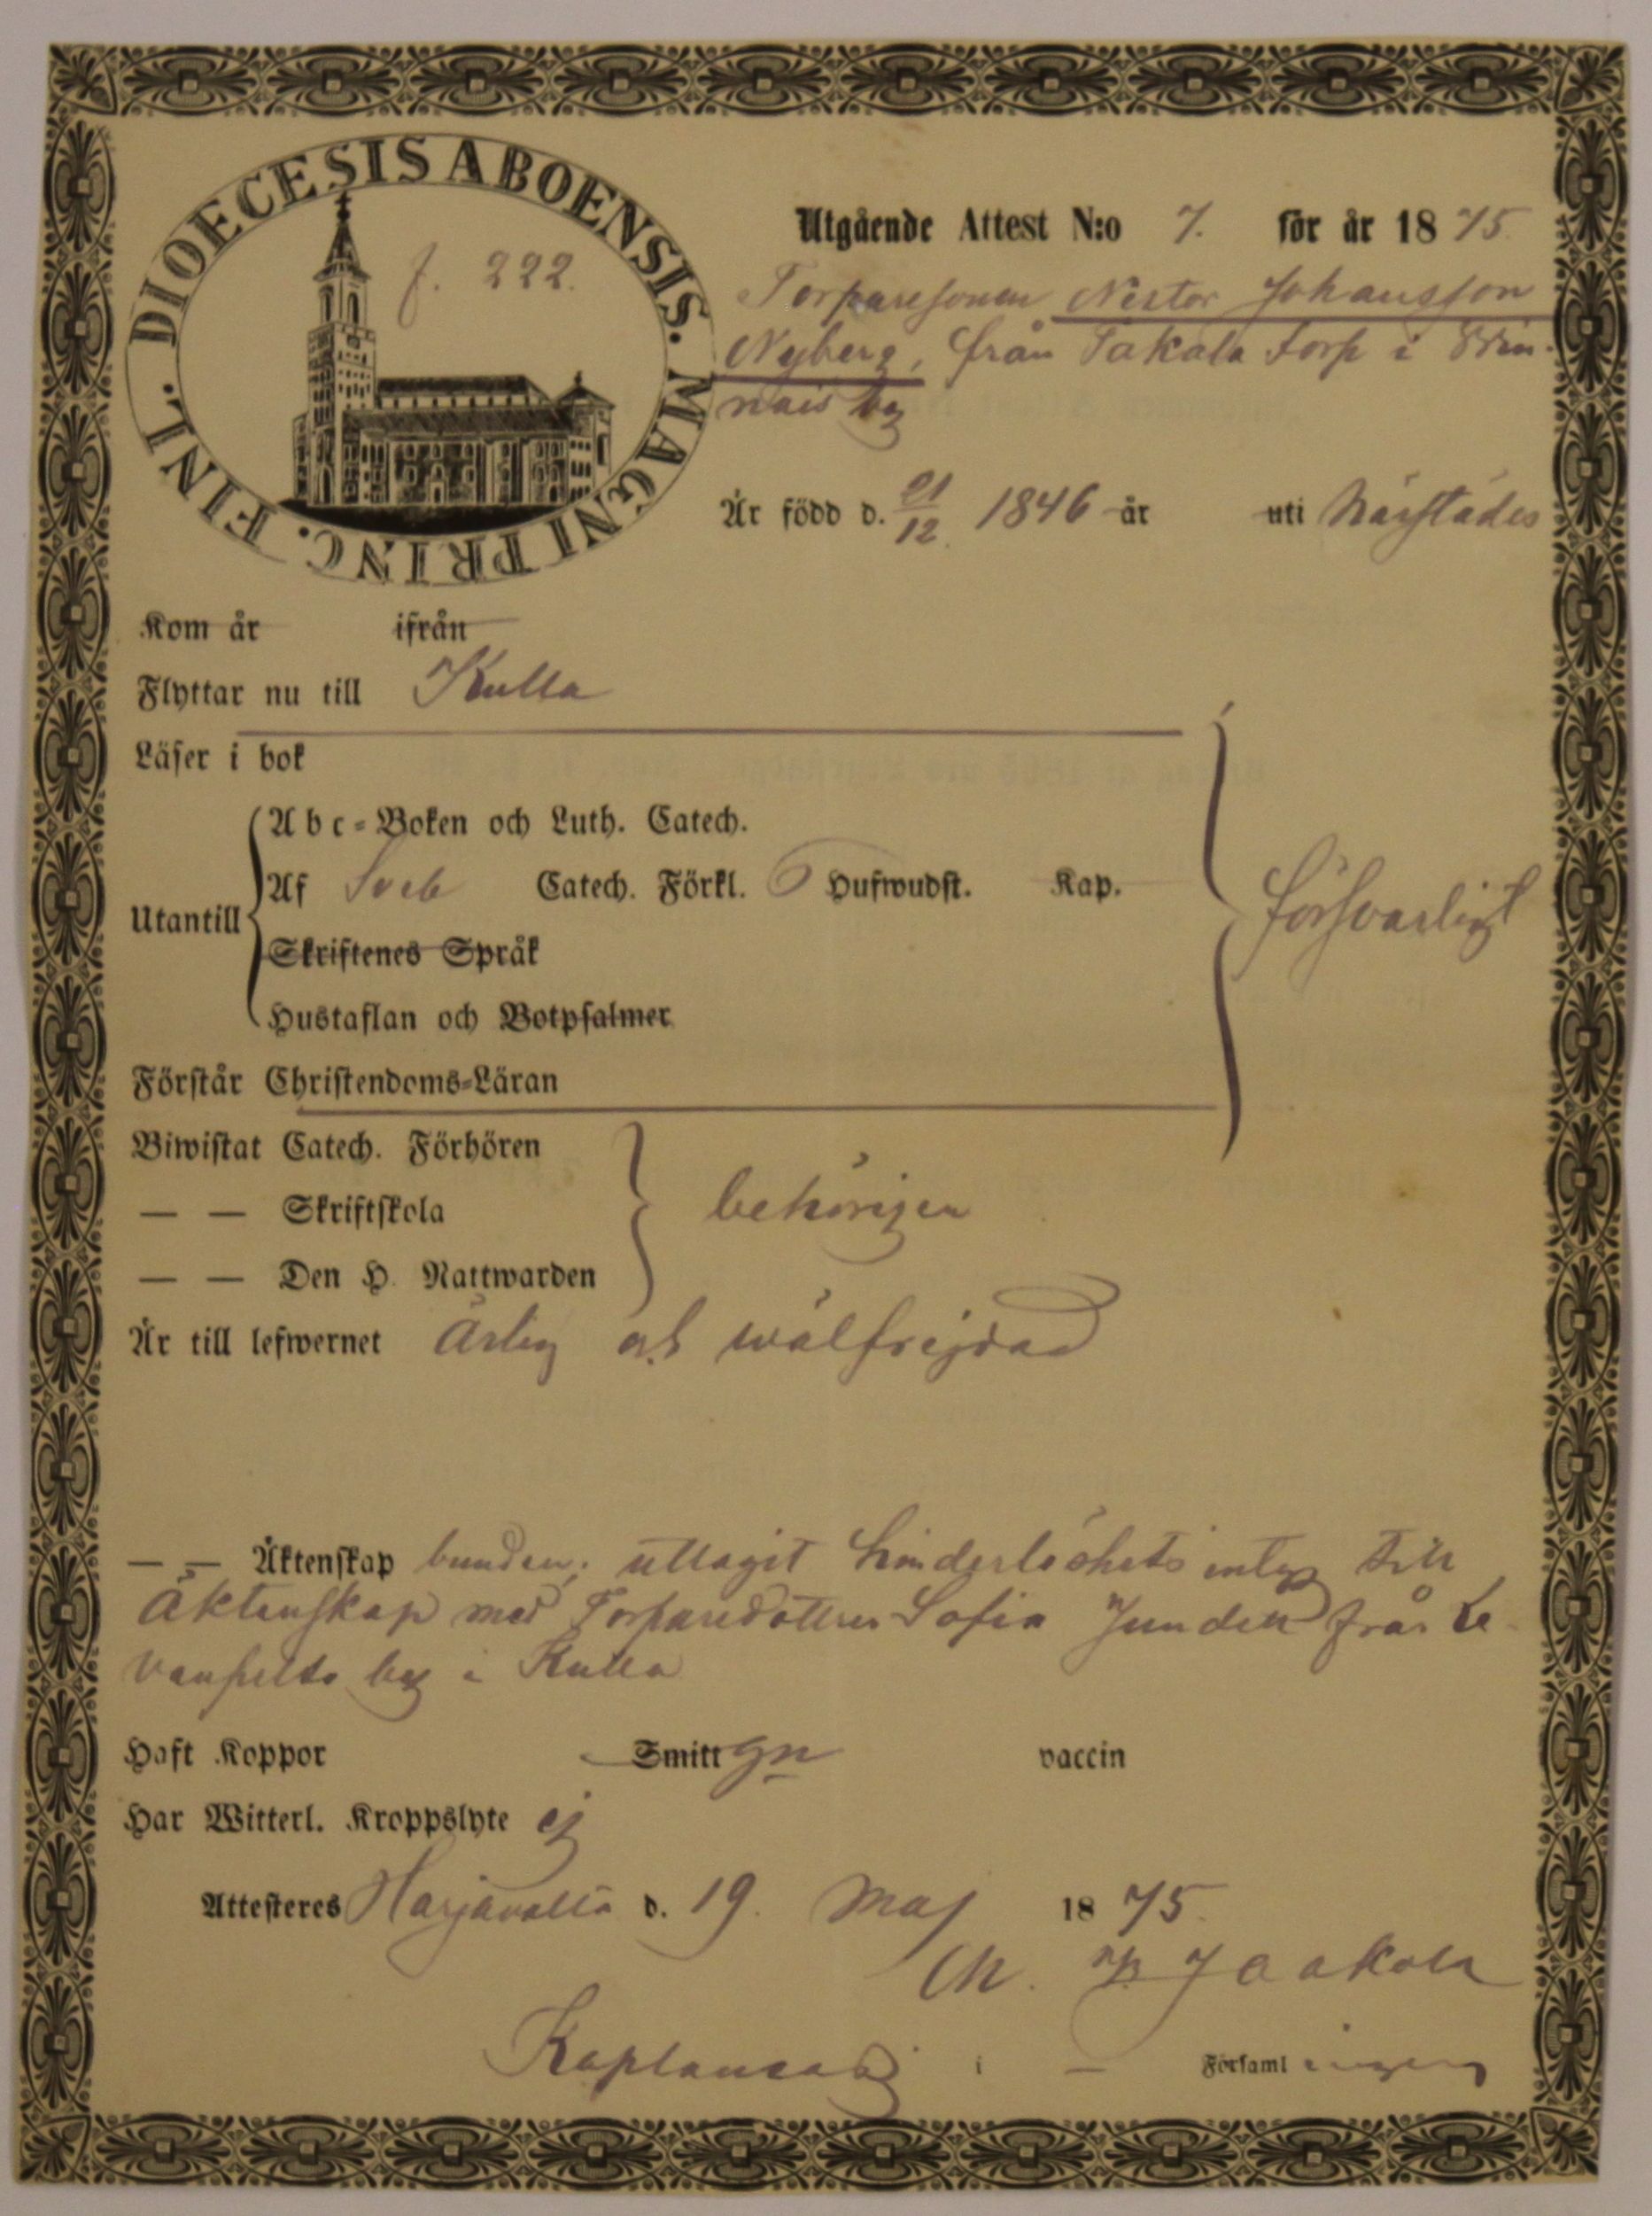 DIOECESIS ABOENSIS. MAGNI PRINC. FINL.
f. 222.
Utgående Attest N:o 7. för år 1875.
Torparesonen Nestor Johansson
Nyberg, från Takala torp i
nais by
Är född d. 21/12 1846 år uti härstädes
Kom år ifrån
Flyttar nu till Kulla
Läser i bok
Abc-Boken och Luth. Catech.
Af Sveb Catech. Förkl. Hufwudst. Kap.
Utantill
försvarligt
Skriftenes Språk
Hustaflan och Botpsalmer
Förstår Christendoms-Läran
Biwistat Catech. Förhören
— — Skriftskola behörigen
— — Den H. Nattwarden
Är till lefwernet ärlig och wälfrejdad
— — Äktenskap bunden; uttagit hinderlöshets intyg till
Äktenskap med Torparedottren Sofia från Le-
vanpelto by i Kulla
Haft Koppor Smitt gn vaccin
Har Witterl. Kroppslyte ej
Attesteres Harjavalta d. 19. Maj 1875.
Jaakola
Kaplansadj. i — Församlingen